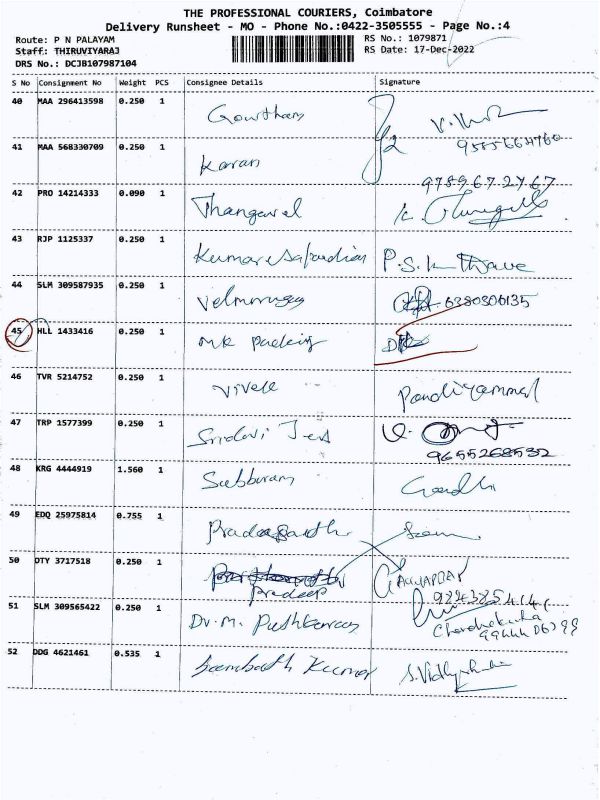 THE PROFESSIONAL COURIERS, Coimbatore
Delivery Runsheet - MO - Phone No.:0422-3505555 - Page No.:4
Route: P N PALAYAM RS No.: 1079871
Staff: THIRUVIYARAJ RS Date: 17-Dec-2022
DRS No.: DCJB107987104
S No Consignment No Weight PCS Consignee Details Signature
40 MAA 296413598 0.250 1 Gowtham
41 MAA 568330709 0.250 1 Karan
9789672767
42 PRO 14214333 0.090 1 Thangavel
43 RJP 1125337 0.250 1 P.S.
44 SLM 309587935 0.250 1 Velmurugan 6380306135
45 HLL 1433416 0.250 1 MK Packing
46 TVR 5214752 0.250 1 Vivek Pandiyammal
47 TRP 1577399 0.250 1 Sridevi
9655268532
48 KRG 4444919 1.560 1 Subburam Gandhi
49 EDQ 25975814 0.755 1
50 DTY 3717518 0.250 1
Pradeep
51 SLM 309565422 0.250 1 Dr. M.
52 DDG 4621461 0.535 1 Sambath Kumar